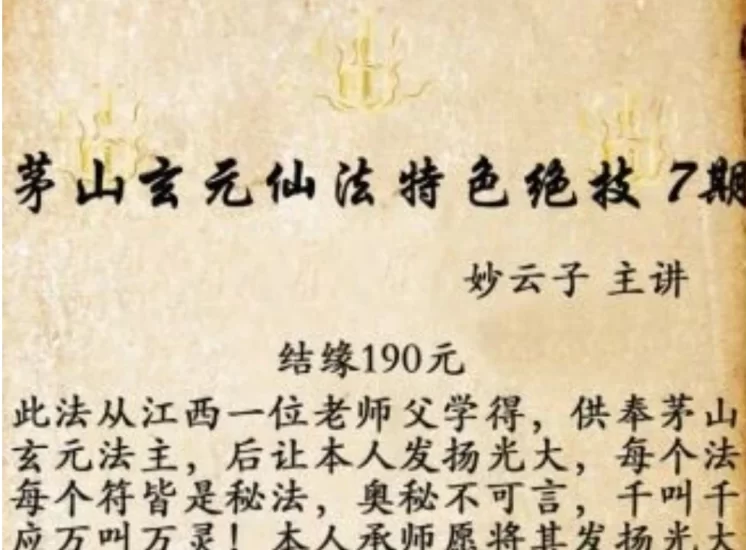 茅山玄元仙法特色绝技 7期
妙云子 主讲
结缘190元
此法从江西一位老师父学得，供奉茅山
玄元法主，后让本人发扬光大，每个法
每个符皆是秘法，奥秘不可言，千叫千
应万叫万灵！本人承师愿将其发扬光大